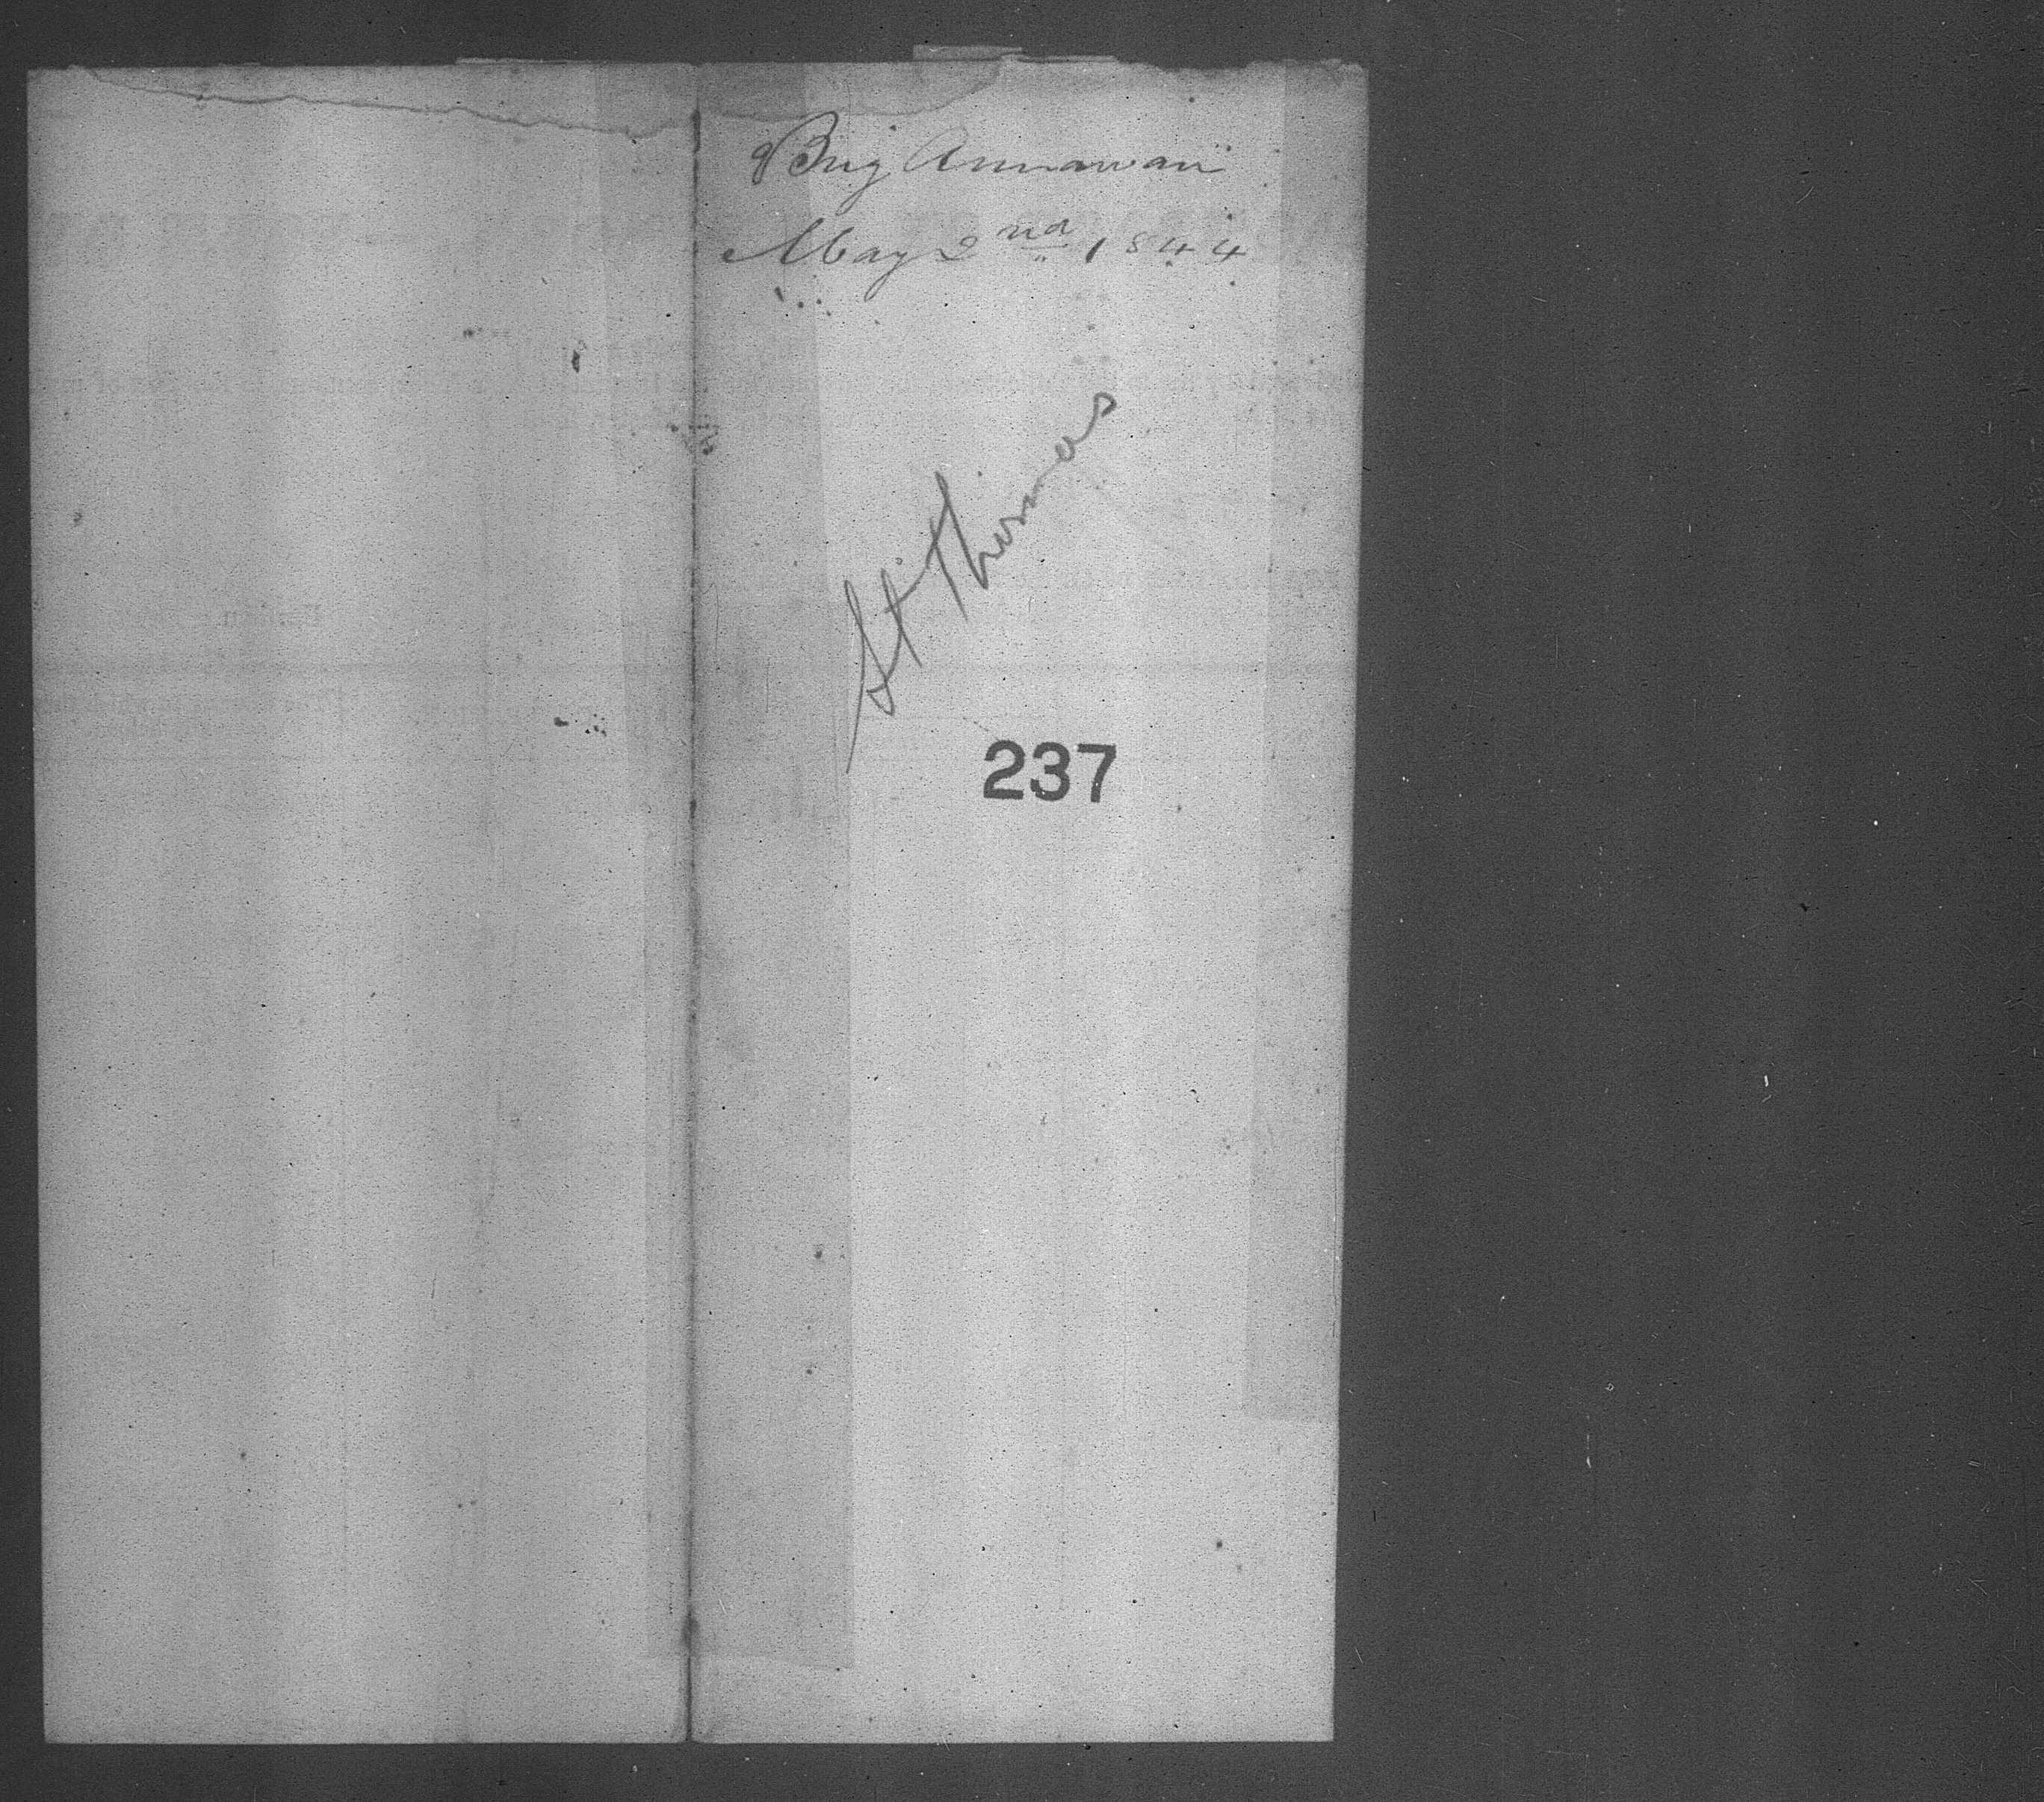 Brig Annawan
May 2nd 1844
St Thomas
237